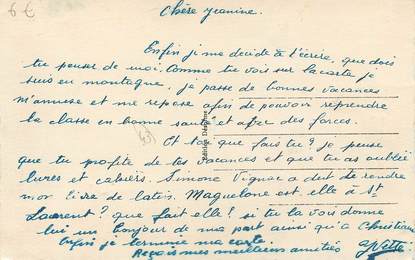 6€
Chère Jeanine.
Enfin je me decide à t'écrire, que dois
tu penser de moi. Comme tu vois sur la carte je
suis en montagne. je passe de bonnes vacances
m'amuse et me repose afin de pouvoir reprendre
la classe en bonne santé et avec des forces.
Et toi que fais tu? je pense
que tu profite de tes vacances et que tu as oublié
livres et cahiers. Simone Vignac a dut te rendre
mon livre de latin. Maguelone est elle à St
Laurent? que fait elle! si tu la vois donne
lui un bonjour de ma part ainsi qu'a Christiane
Enfin je termine ma carte
Reçois mes meilleurs amitiés Yvette
Edition